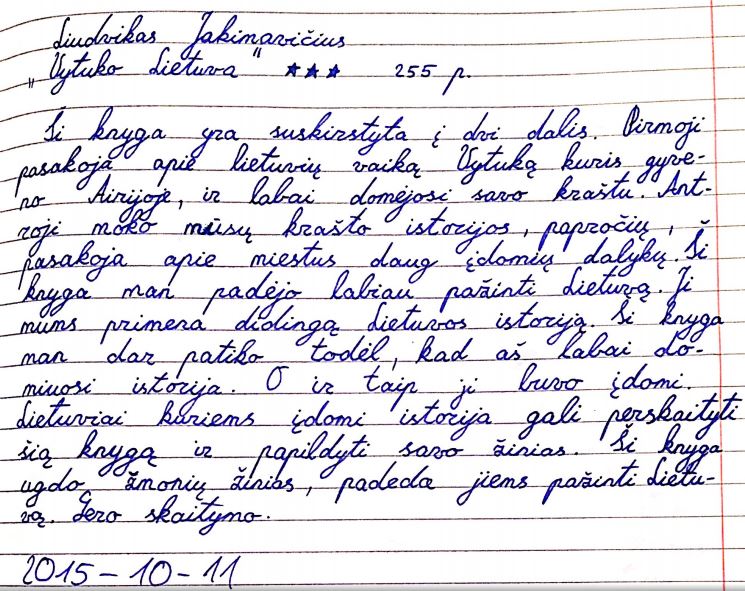 Liudvikas Jakimavičius
„Vytuko Lietuva" ★★★ 255 p.
Ši knyga yra suskirstyta į dvi dalis. Pirmoji
pasakoja apie lietuvių vaiką Vytuką kuris gyve-
no Airijoje, ir labai domėjosi savo kraštu. Ant-
roji moko mūsų krašto istorijos, papročių,
pasakoja apie miestus daug įdomių dalykų. Ši
knyga man padėjo labiau pažinti Lietuvą. Ji
mums primena didingą Lietuvos istoriją. Ši knyga
man dar patiko todėl, kad aš labai do-
miuosi istorija. O ir taip ji buvo įdomi.
Lietuviai kuriems įdomi istorija gali perskaityti
šią knygą ir papildyti savo žinias. Ši knyga
ugdo žmonių žinias, padeda jiems pažinti Lietu-
vą. Gero skaitymo.
2015-10-11